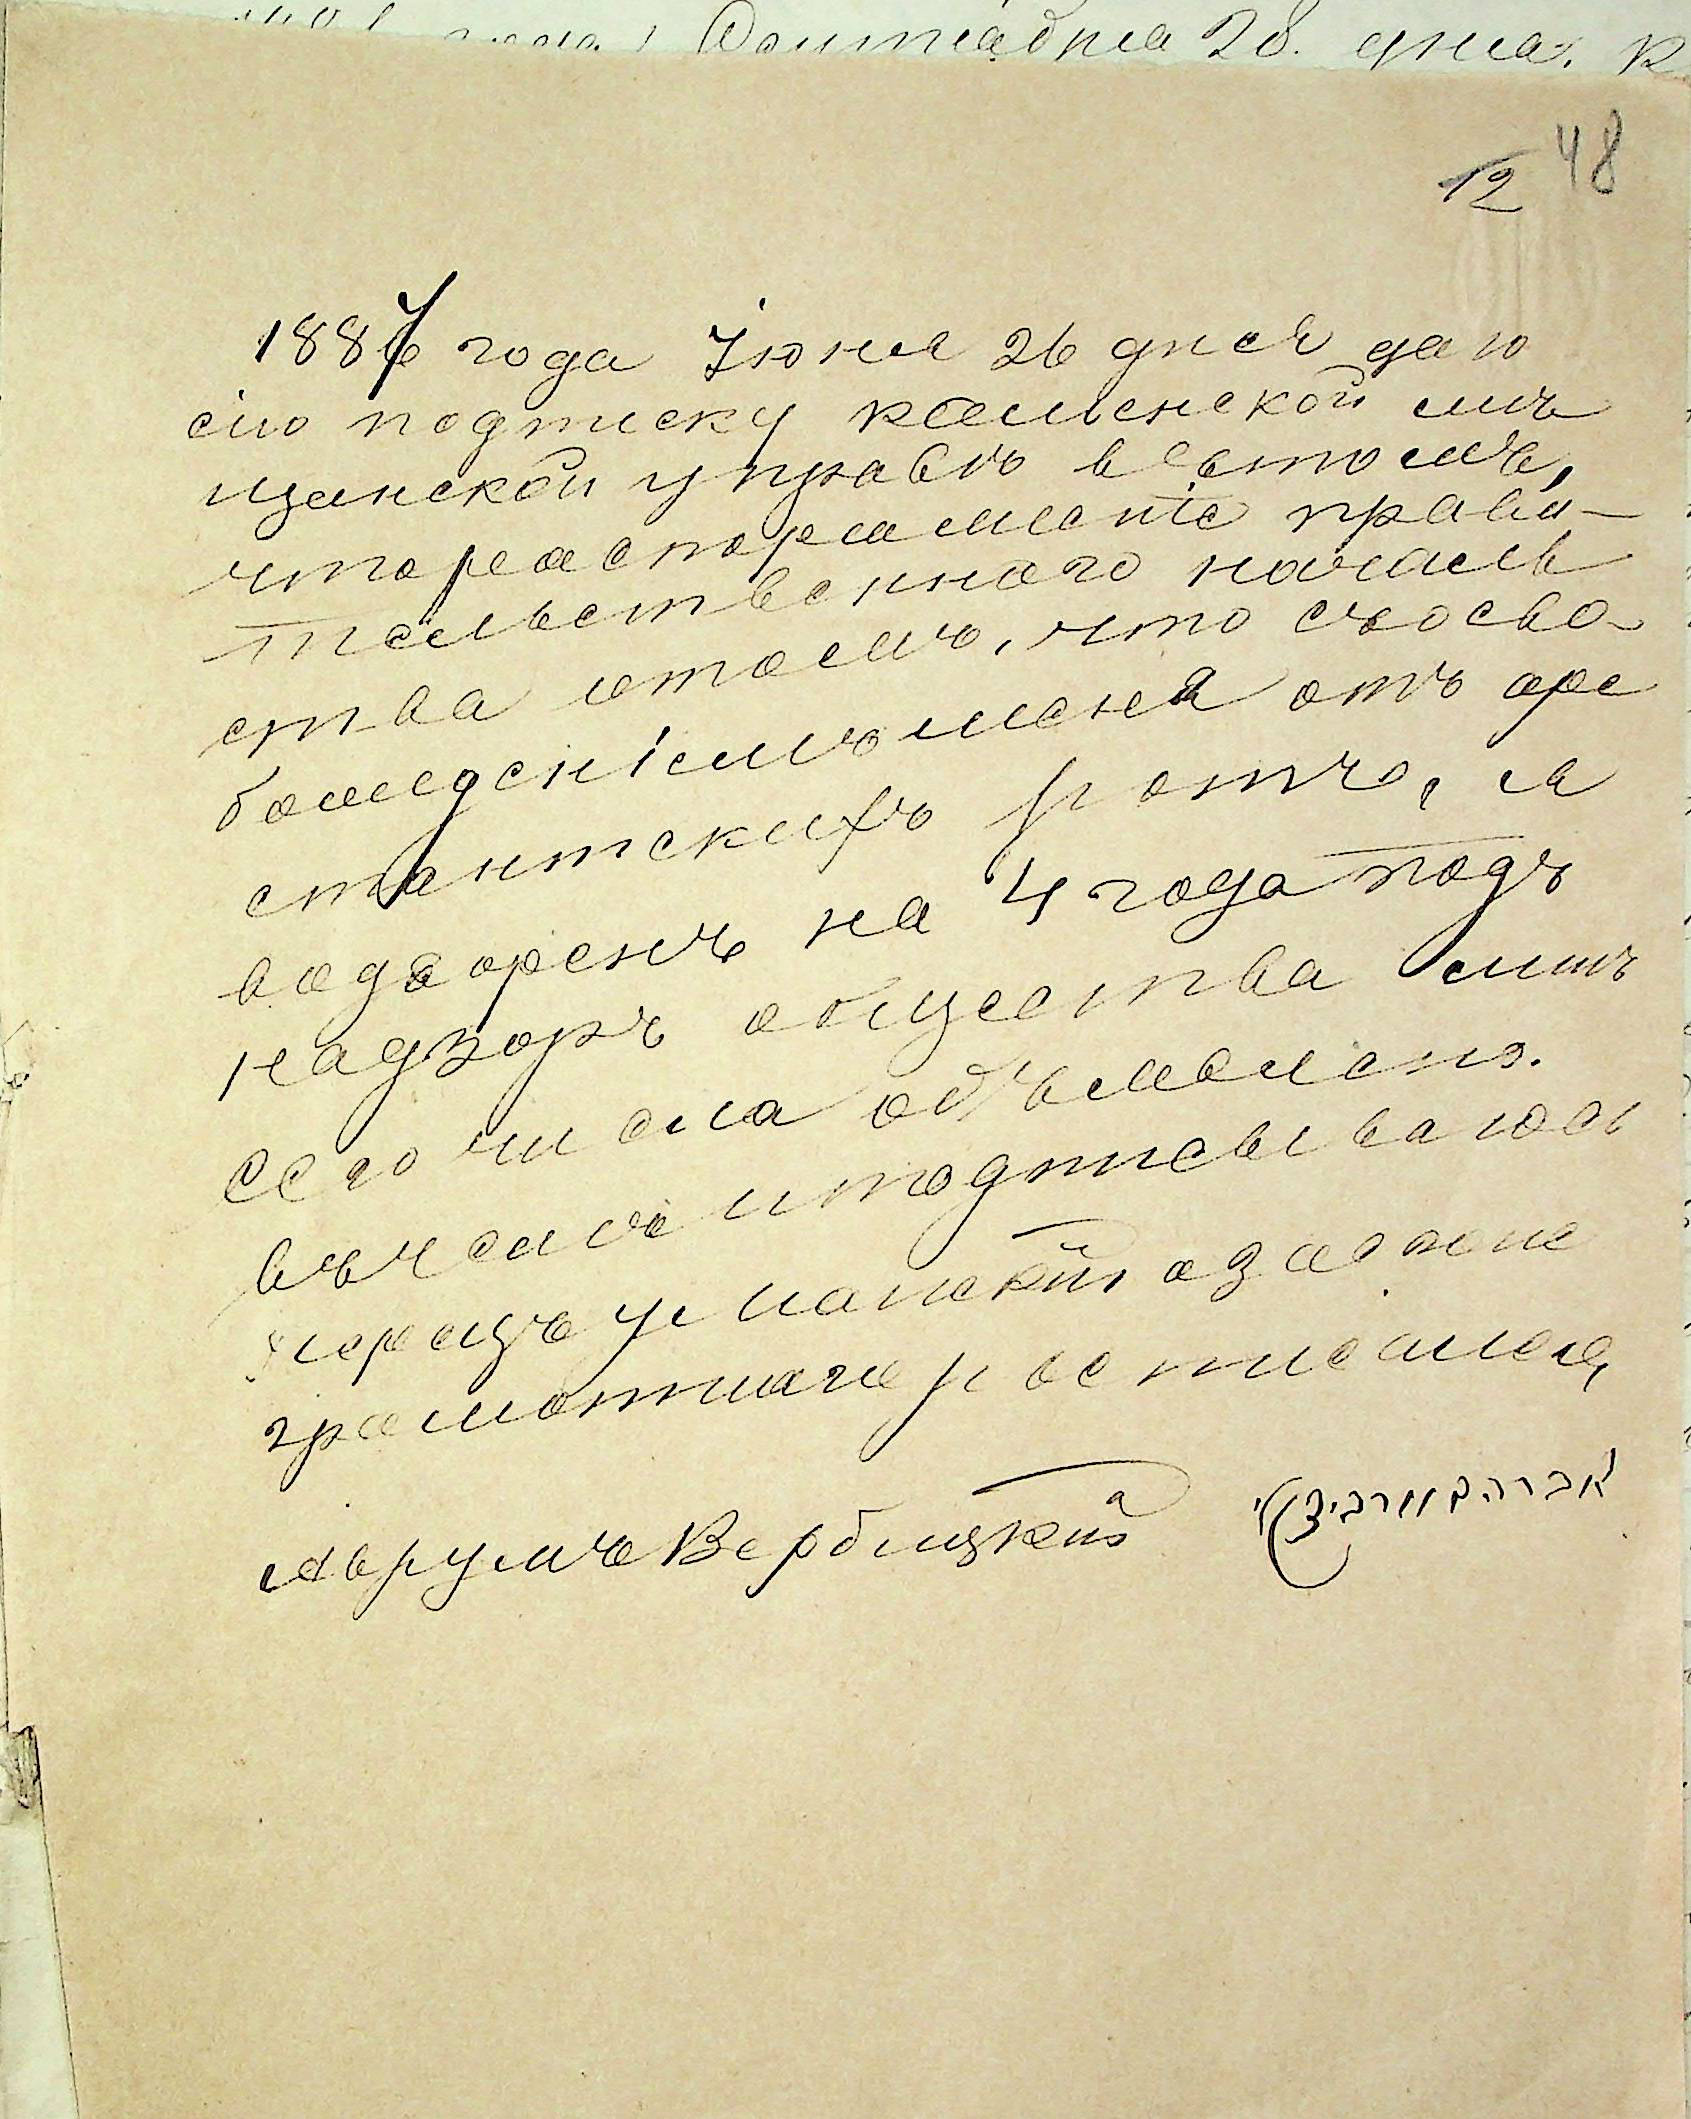 Сентября 28. дня. К
48
12
1887 года Іюня 26 дня даю
сію подписку каменской мѣ
щанской управѣ вътомъ,
чтораспоряженіе прави-
тельственнаго началь
ства отомъ, что съосво-
божденіемъ меня отъ аре
стантскихъ ротъ, я
водворенъ на 4 года подъ
надзоръ общества мнѣ
сего числа объявлено.
въчемъ иподписываюсь
Уманскій азанего
грамотнаго росписался,
Аврумъ Вербицкій אברהם ווערביצקי